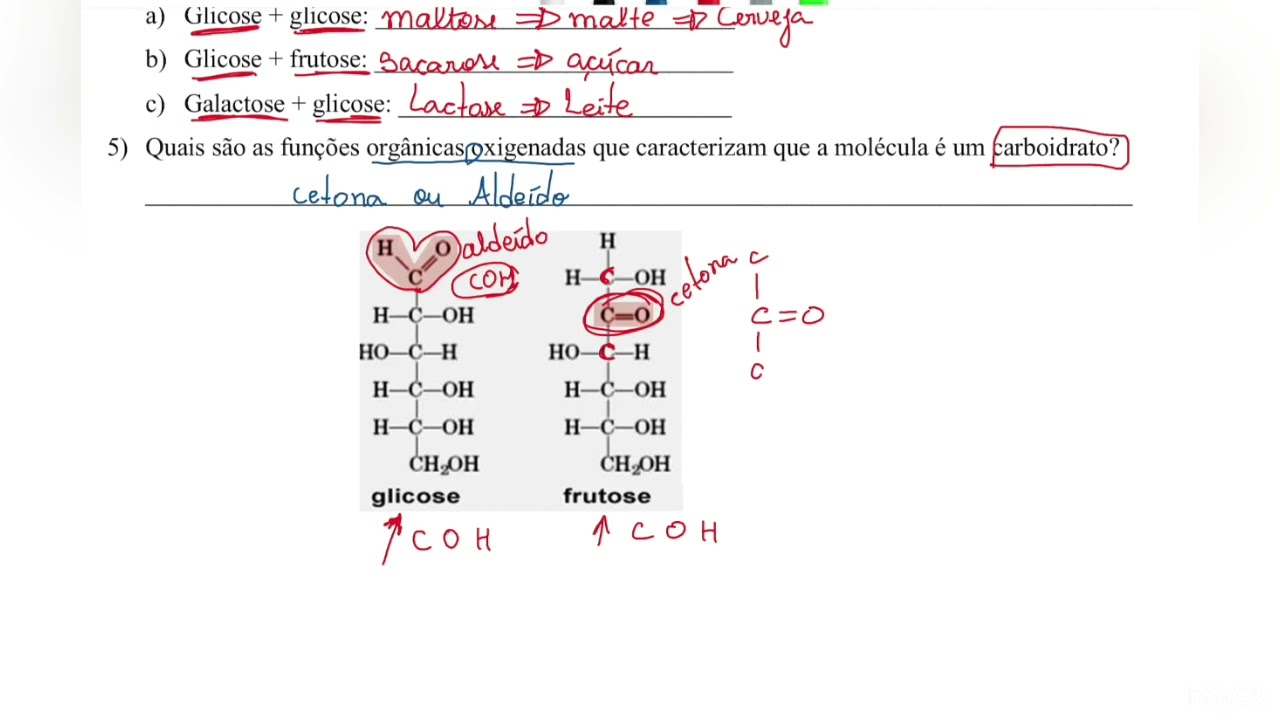 a) Glicose + glicose: maltose ⇒ malte ⇒ Cerveja
b) Glicose + frutose: Sacarose ⇒ açúcar
c) Galactose + glicose: Lactose ⇒ Leite
5) Quais são as funções orgânicas oxigenadas que caracterizam que a molécula é um carboidrato?
cetona ou Aldeído
H O aldeído
C COH
H—C—OH
HO—C—H
H—C—OH
H—C—OH
CH₂OH
glicose
↑ C O H
H
H—C—OH
C=O cetona
HO—C—H
H—C—OH
H—C—OH
CH₂OH
frutose
↑ C O H
C
C=O
C